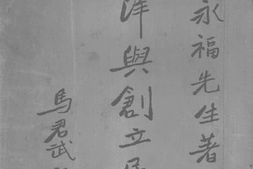 永福先生著
洋與創立民
馬君武